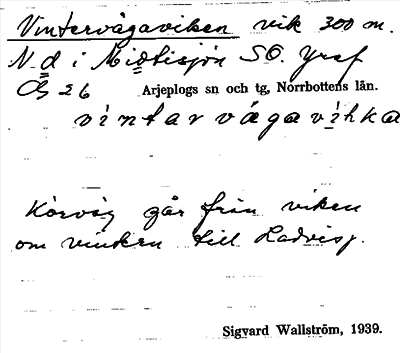 Vintervägaviken vik 300 m.
N d i Midtisjön SO.
G 26 Arjeplogs sn och tg, Norrbottens län.
vìntarvägavìhka
Körväg går från viken
om vintern till Ladvisj.
Sigvard Wallström, 1939.